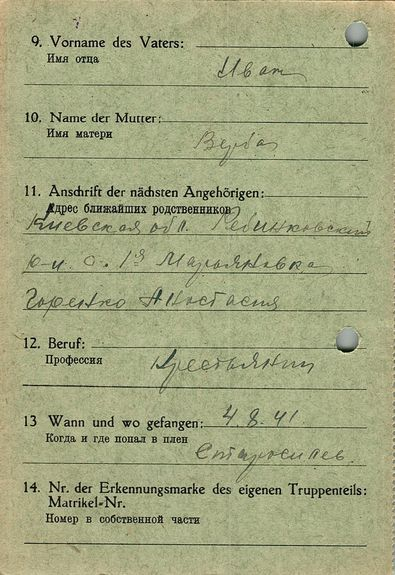 9. Vorname des Vaters:
Имя отца
Иван
10. Name der Mutter:
Имя матери
Верба
11. Anschrift der nächsten Angehörigen:
Адрес ближайших родственников
Киевская обл.
с. 1я Марьяновка
Анастасия
12. Beruf:
Профессия
Крестьянин
13 Wann und wo gefangen: 4.8.41.
Когда и где попал в плен
14. Nr. der Erkennungsmarke des eigenen Truppenteils:
Matrikel-Nr.
Номер в собственной части